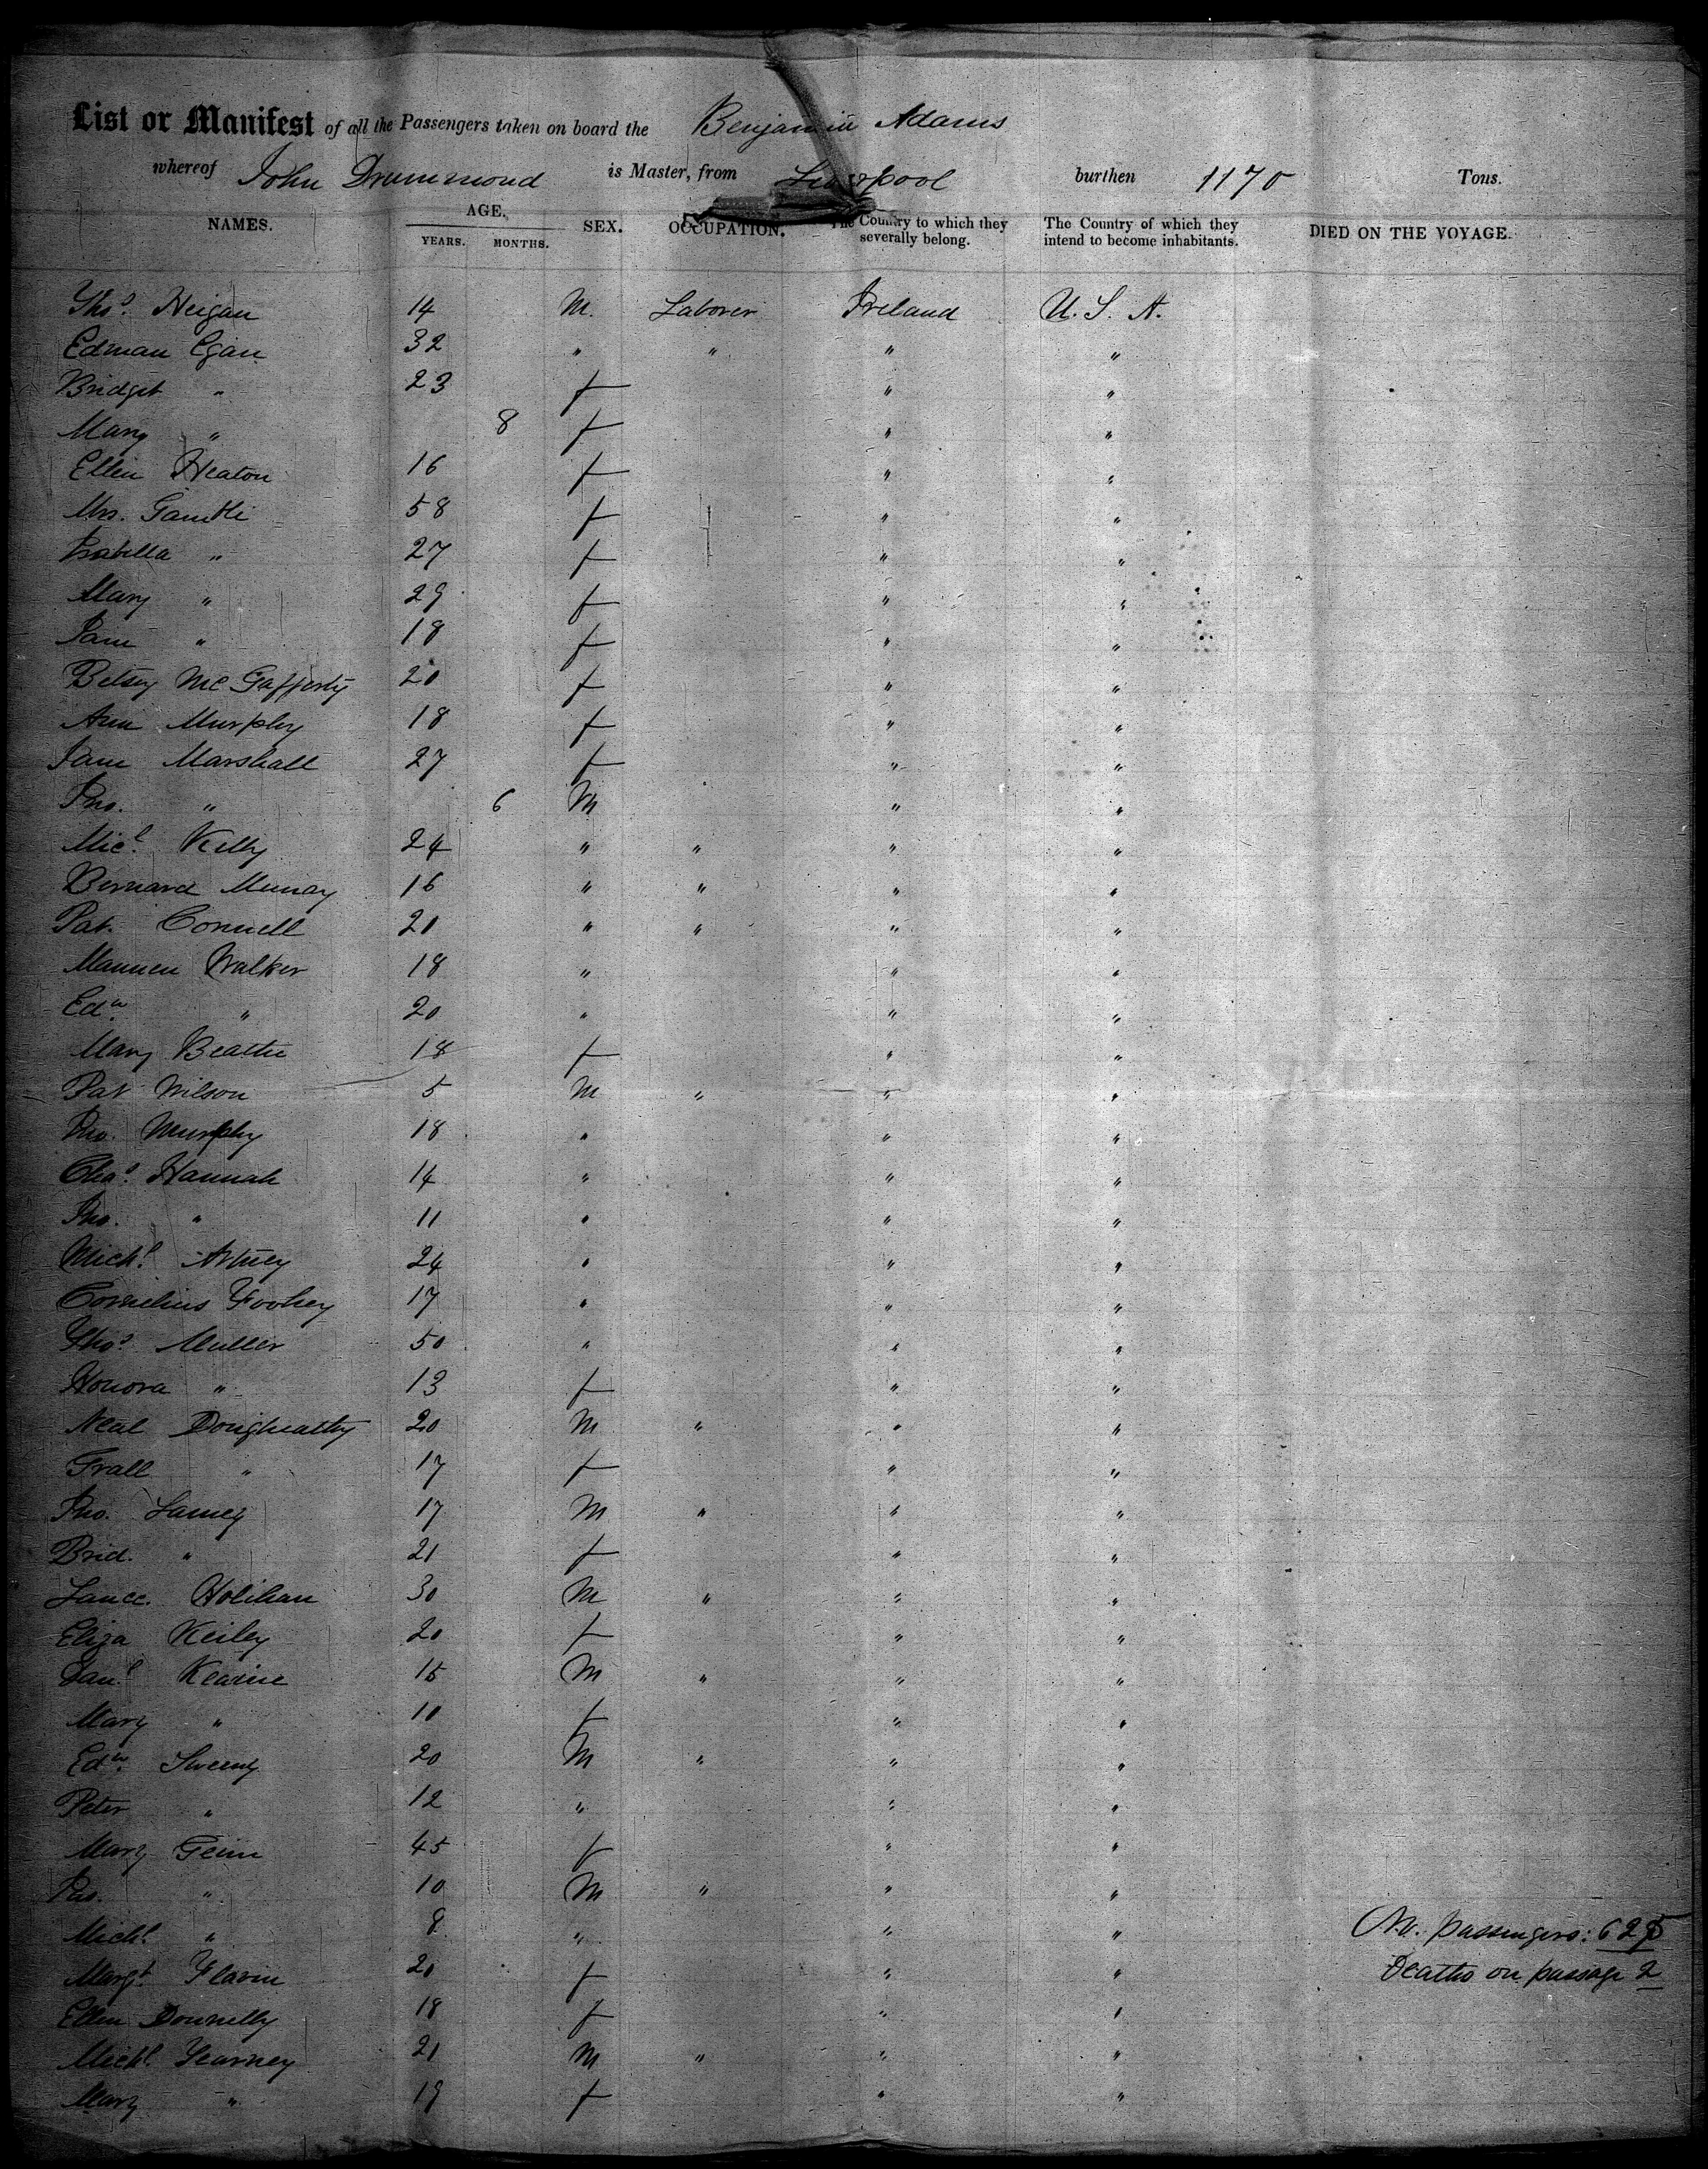 List or Manifest of all the Passengers taken on board the Benjamin Adams
whereof John Drummond is Master, from Liverpool burthen 1170 Tons.
NAMES. AGE. YEARS. MONTHS. SEX. OCCUPATION. The Country to which they severally belong. The Country of which they intend to become inhabitants. DIED ON THE VOYAGE.
Thos. Heigan 14 M. Laborer Ireland U. S. A.
Edman Egan 32 " " " "
Bridget " 23 f " "
Mary " 8 f " "
Ellen Heaton 16 f " "
Mrs. 58 f " "
Isabella " 27 f " "
Mary " 29 f " "
Jane " 18 f " "
Betsey McGafferty 20 f " "
Ann Murphy 18 f " "
Jane Marshall 27 f " "
Jno. " 6 M " "
Micl. Kelly 24 " " " "
Bernard Murray 16 " " " "
Pat. Connell 21 " " " "
Walker 18 " " "
Edw. " 20 " " "
Mary Beattie 18 f " "
Pat Wilson 5 M " " "
Jno. Murphy 18 " " "
Chas. Hannah 14 " " "
Jno. " 11 " " "
Michl. 24 " " "
Cornelius Foohey 17 " " "
Thos. Muller 50 " " "
Honora " 13 f " "
Neal Dougheatty 20 M " " "
Grall " 17 f " "
Jno. Lamey 17 M " " "
Brid. " 21 f " "
Lance. Holihan 30 M " " "
Eliza Keiley 20 f " "
Danl. Kearne 15 M " " "
Mary " 10 f " "
Edw. Sweeny 20 M " " "
Peter " 12 " " "
Mary Geinn 45 f " "
Jas. " 10 M " " "
Michl. " 8 " " " No. passengers: 625
Margt. Flavin 20 f " " Deaths on passage 2
Ellen Donnelly 18 f " "
Michl. Gearney 21 M " " "
Mary " 19 f " "